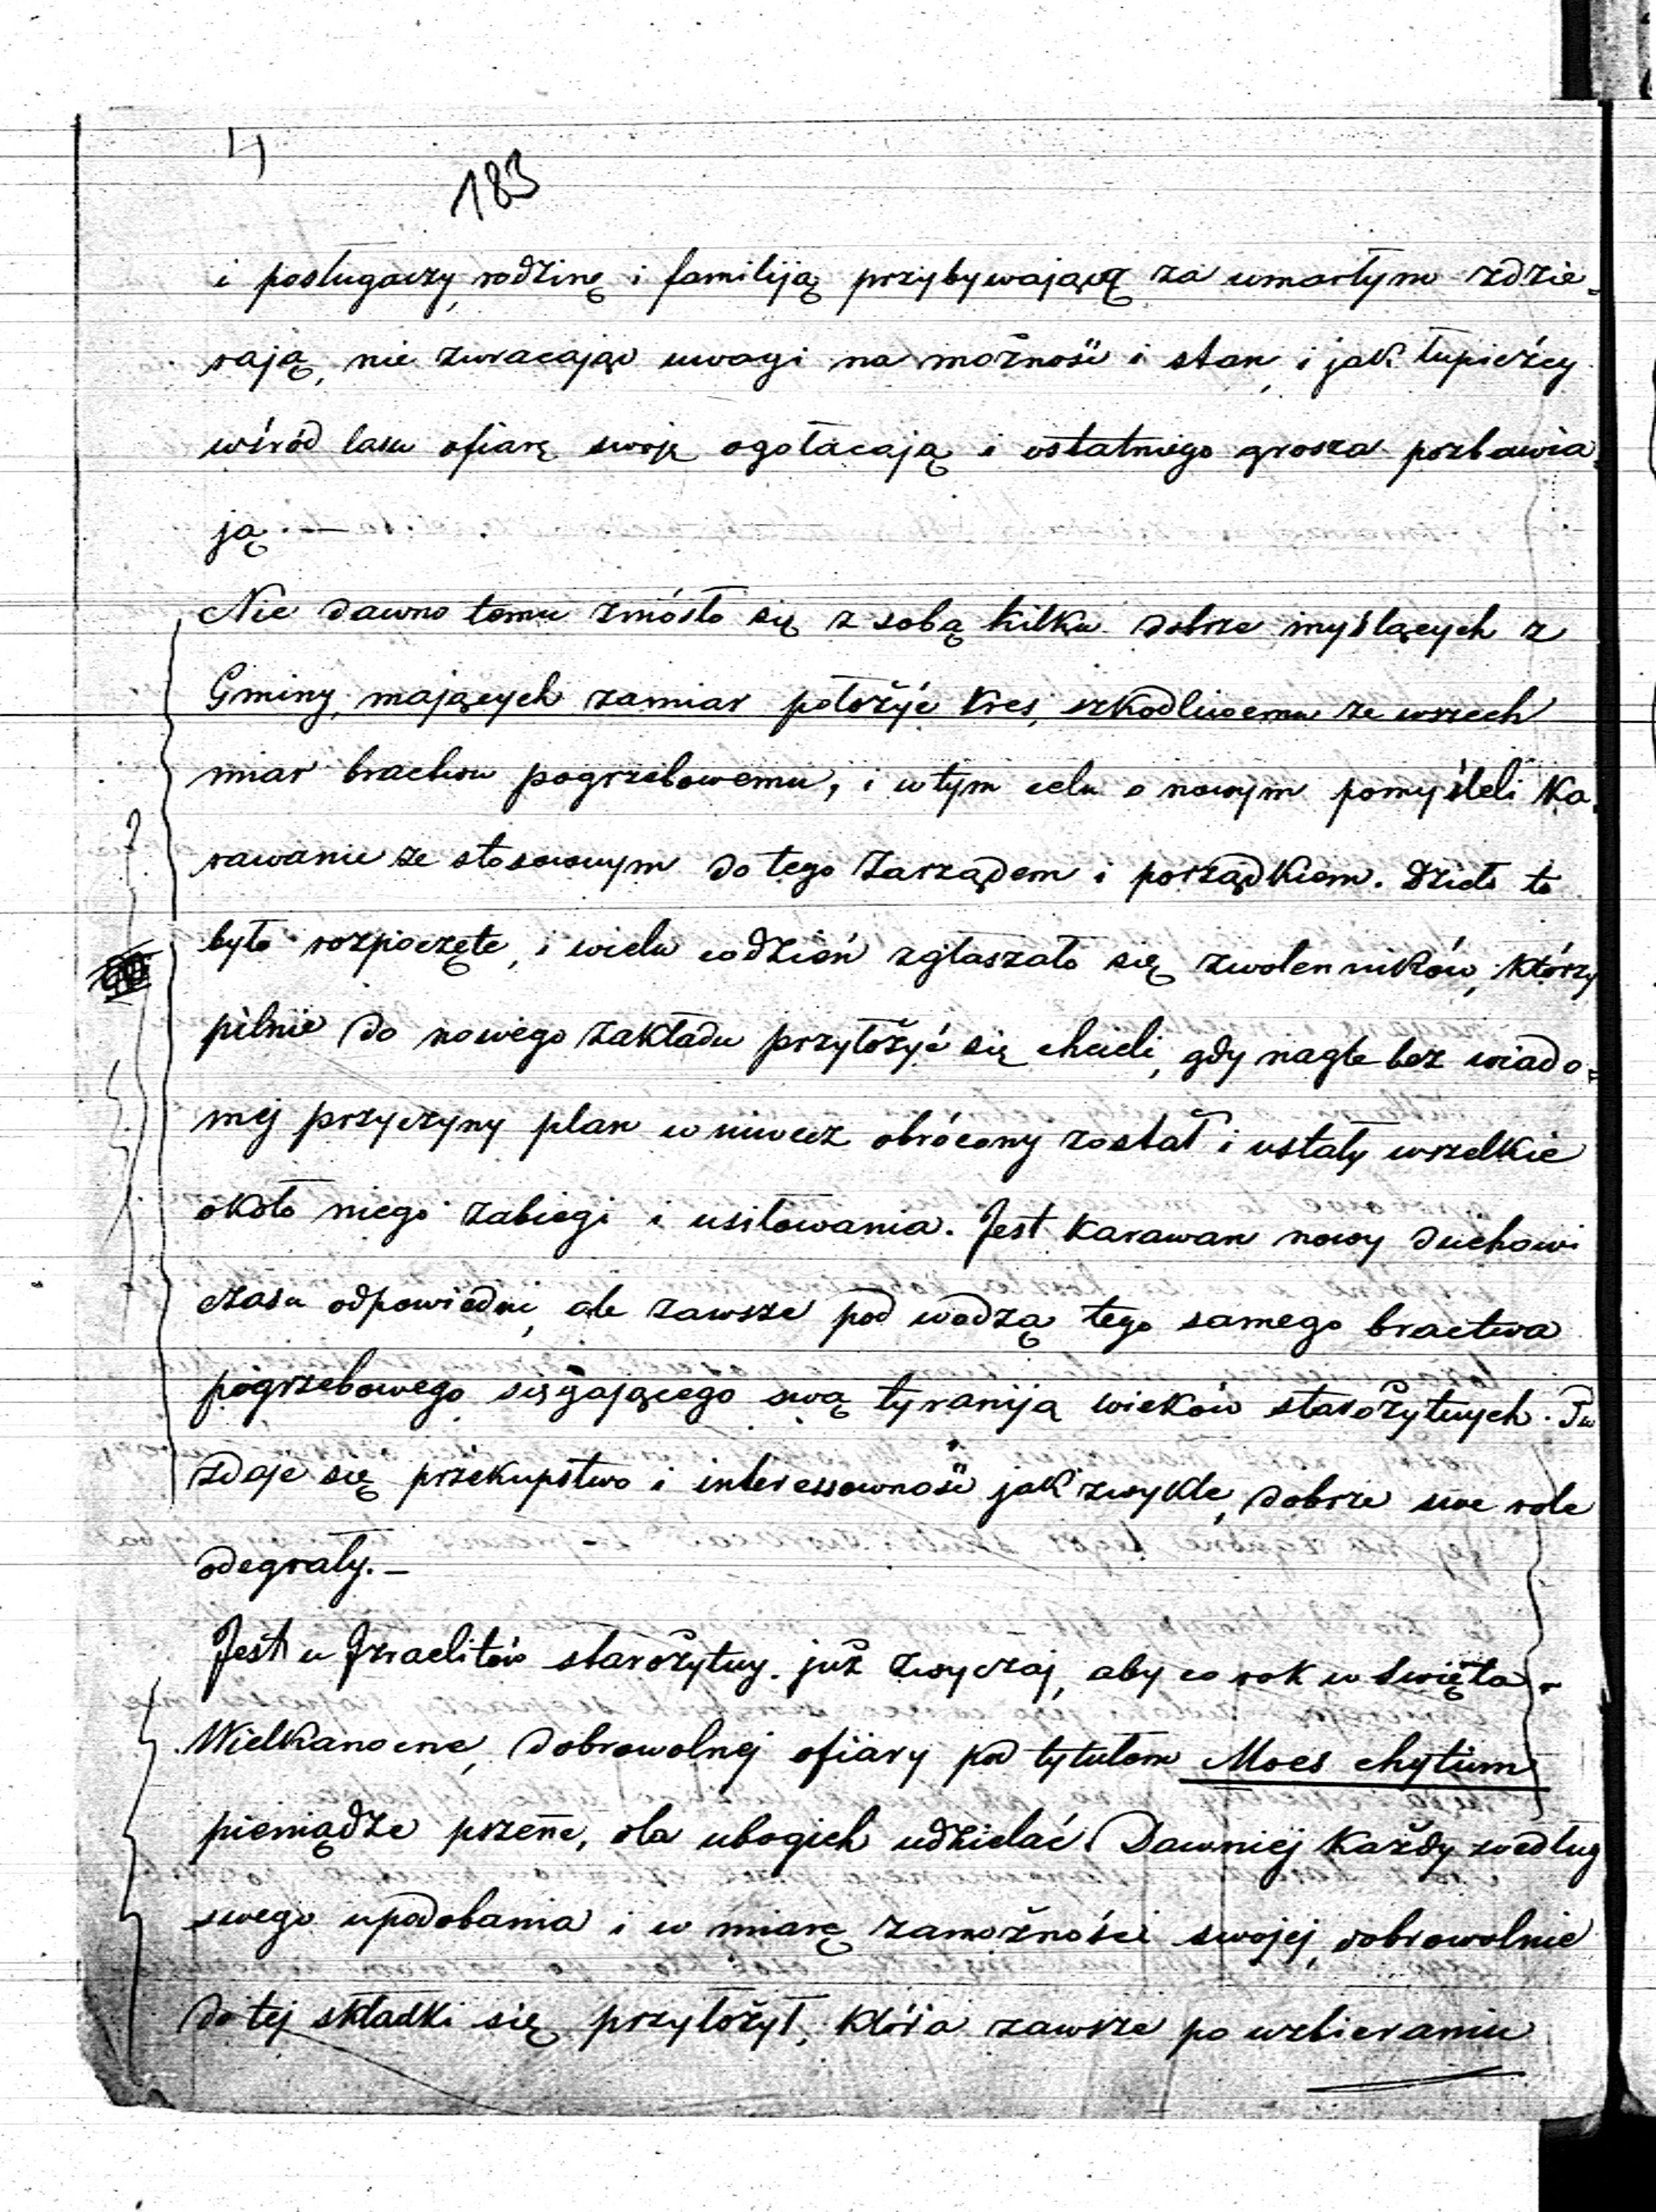 4
183
i posługaczy, rodzinę i familiją przybywającą za umarłym zdzie-
rają, nie zwracając uwagi na możność i stan, i jak łupieźcy
wśród lasu ofiarę swoję ogołacają i ostatniego grosza pozbawia-
ją. —
Nie dawno temu zniósło się z sobą kilku dobrze myślących z
Gminy, mających zamiar położyć kres, szkodliwemu ze wszech
miar bractwu pogrzebowemu, i w tym celu o nowym pomyśleli Ka-
rawanie ze stosownym do tego Zarządem i porządkiem. Dzieło to
było rozpoczęte, i wielu codzień zgłaszało się zwolenników, którzy
pilnie do nowego zakładu przyłożyć się chcieli, gdy nagle bez wiado-
mej przyczyny plan w niwecz obrócony został i ustały wszelkie
około niego zabiegi i usiłowania. Jest Karawan nowy duchowi
czasu odpowiedni, ale zawsze pod wodzą tego samego bractwa
pogrzebowego sięgającego swą tyranija wieków starożytnych. Tu
zdaje się przekupstwo i interessowność jak zwykle, dobrze swe role
odegrały. —
Jest u Izraelitów starożytny już zwyczaj, aby co rok w święta
Wielkanocne, dobrowolnej ofiary pod tytułem Moes chytim
pieniądze przenne, dla ubogich udzielać. Dawniej każdy według
swego upodobania i w miarę zamożności swojej, dobrowolnie
do tej składki się przyłożył, która zawsze po uzbieraniu